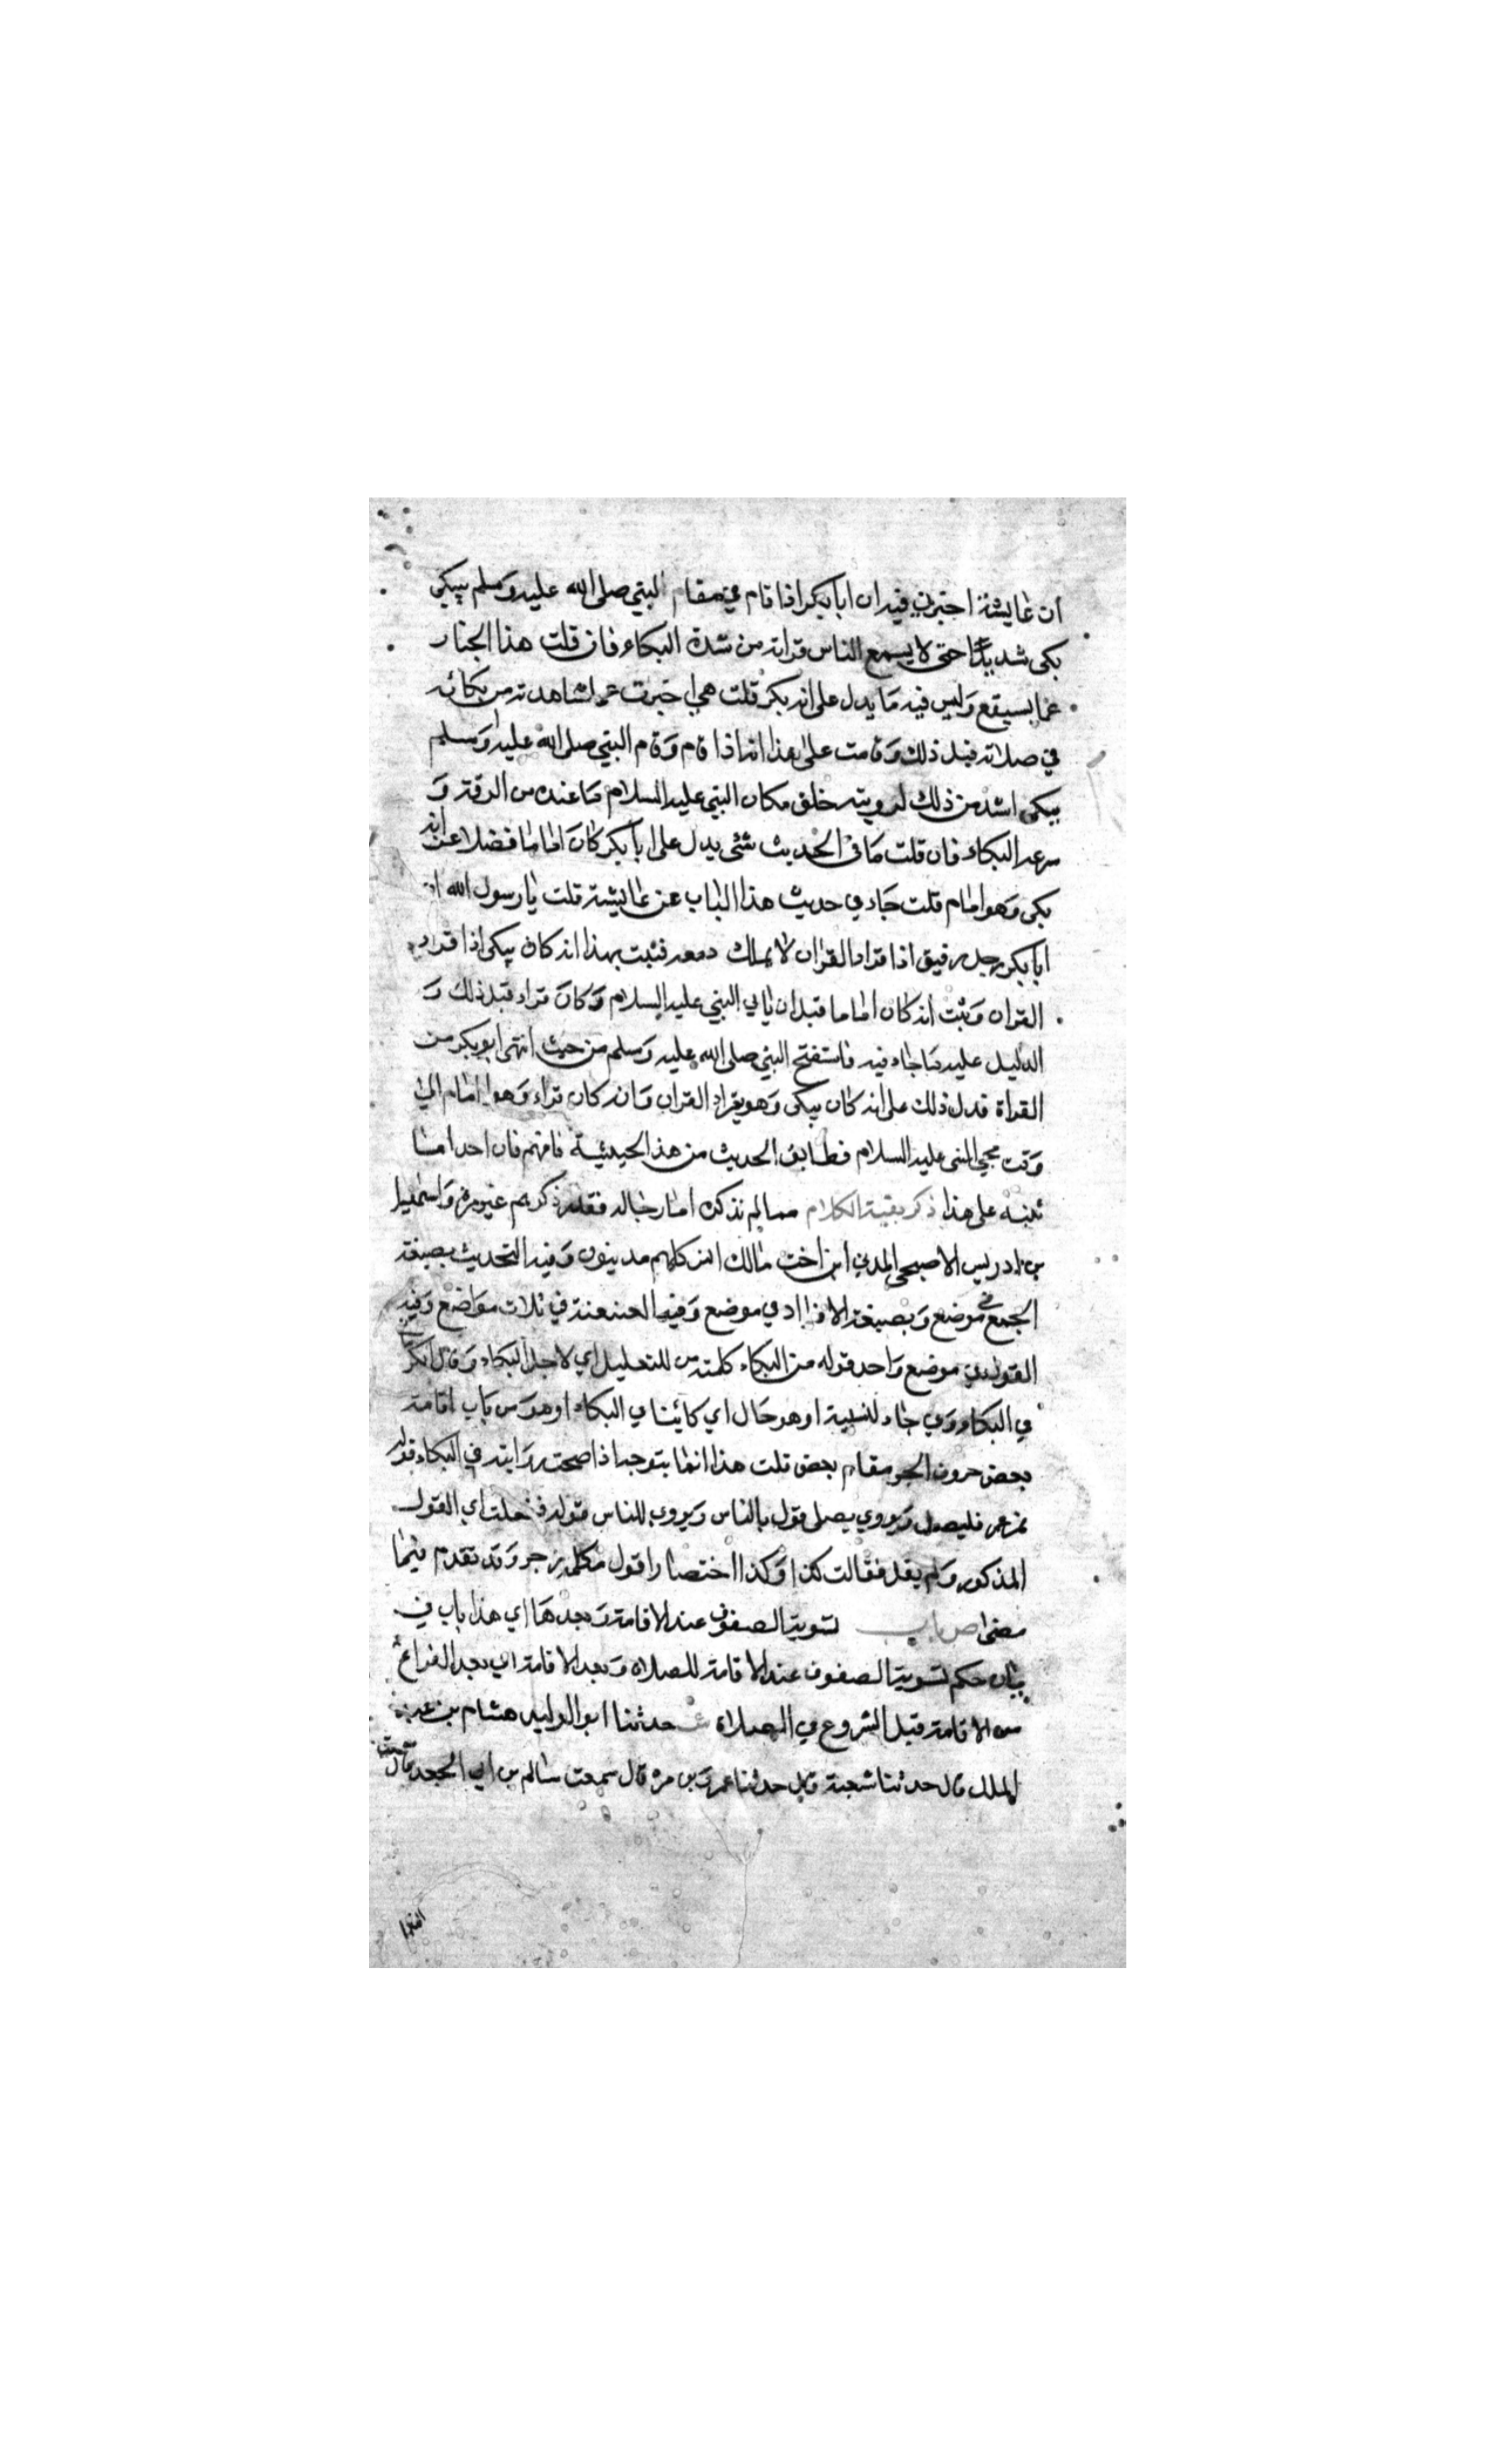 أن عايشة اخبرني فيه ان ابا بكر اذا قام في مقام النبي صلى الله عليه وسلم يبكي
بكى شديدا حتى لا يسمع الناس قراته من شدة البكاء فان قلت هذا اخبار
عما سيقع وليس فيه ما يدل على انه بكى قلت هي اخبرت عما شاهدته من بكائه
في صلاته قبل ذلك وقامت على هذا انه اذا قام وقام النبي صلى الله عليه وسلم
يبكي اشد من ذلك لرويته خلق مكان النبي عليه السلام مما عنده من الرقة و
سرعة البكاء فان قلت ما في الحديث شئ يدل على ابا بكر كان اماما فضلا عن انه
بكى وهو امام قلت جاء في حديث هذا الباب عن عايشة قلت يا رسول الله ان
ابا بكر رجل رقيق اذا قراء القران لا يملك دمعه فثبت بهذا انه كان يبكي اذا قراء
القران وثبت انه كان اماما قبل ان ياتي النبي عليه السلام وكان قراء قبل ذلك و
الدليل عليه ما جاء فيه فاستفتح النبي صلى الله عليه وسلم من حيث انتهى ابو بكر من
القراة فدل ذلك على انه كان يبكي وهو يقراء القران وانه كان قراء وهو امام الى
وقت مجي النبي عليه السلام فطابق الحديث من هذا الحيثية فافهم فان احدا ما
نبه على هذا ذكر بقية الكلام مما لم نذكره اما رجاله فقد ذكرهم غير مرة واسمعيل
بن ادريس الاصبحي المدني ابن اخت مالك انس كلهم مدنيون وفيه التحديث بصيغة
الجمع في موضع وبصيغة الافراد في موضع وفيه العنعنة في ثلاث مواضع وفيه
القول في موضع واحد قوله من البكاء كلمة من للتعليل اي لاجل البكاء وقال الكر
في البكاء وفي جاء للسببية او هو حال اي كائنا في البكاء او هو من باب اقامة
بعض حروف الجر مقام بعض قلت هذا انما يتوجه اذا صحت روايته في البكاء قوله
عمر فليصل ويروي يصلي قول بالناس ويروى للناس قوله ففعلت اي القول
المذكور ولم يقل فقالت كذا وكذا اختصارا قول مه كلمة زجر وقد تقدم فيما
مضى ص باب تسوية الصفوف عند الاقامة وبعدها اي هذا باب في
بيان حكم تسوية الصفوف عند الاقامة للصلاة وبعد الاقامة اي بعد الفراغ
من الاقامة قبل الشروع في الصلاة حدثنا ابو الوليد هشام بن عبد
الملك قال حدثنا شعبة قال حدثنا عمرو بن مرة قال سمعت سالم بن ابي الجعد قال سمعت